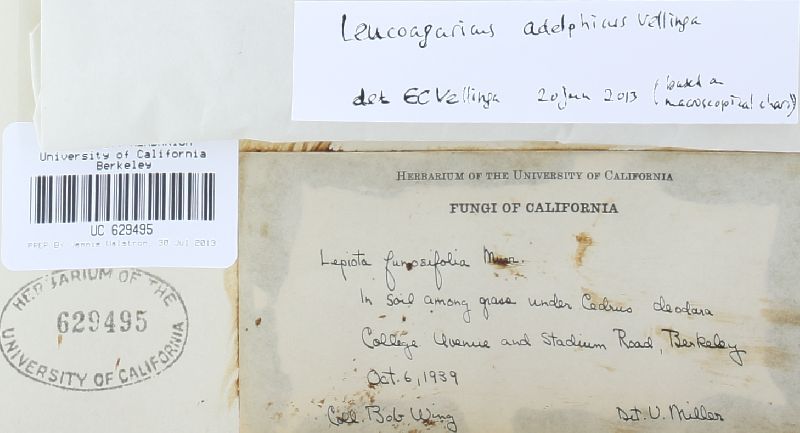 Leucoagaricus adelphicus Vellinga
det EC Vellinga 20 Jun 2013 (based on
macroscopical chars)
University of California
Berkeley
UC 629495
30 Jul 2013
HERBARIUM OF THE
629495
UNIVERSITY OF CALIFORNIA
HERBARIUM OF THE UNIVERSITY OF CALIFORNIA
FUNGI OF CALIFORNIA
Lepiota fumosifolia Murr.
In soil among grass under Cedrus deodara
College Avenue and Stadium Road, Berkeley
Oct. 6, 1939
Coll. Bob Wing Det. V. Miller